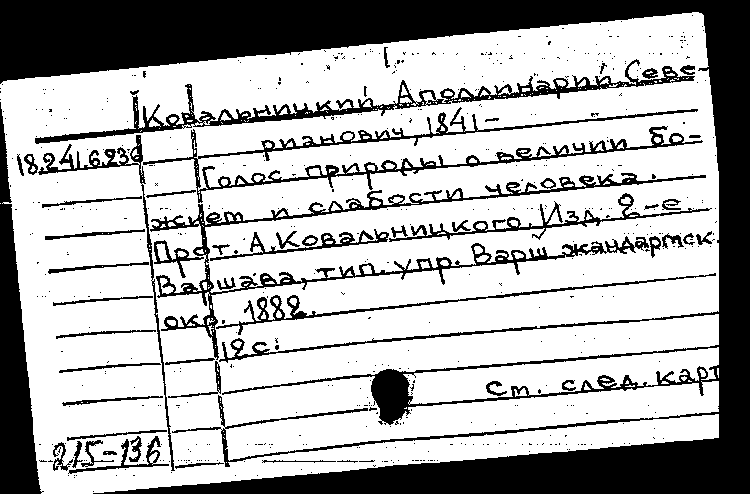 Ковальницкий, Аполлинарий Севе-
рианович, 1841-
18.241.6.236
Голос природы о величии бо-
жием и слабости человека.
Прот. А. Ковальницкого. Изд. 2-е.
Варшава, тип. упр. Варш жандармск.
окр., 1882.
12 с.
Ст. след. карт
215-136